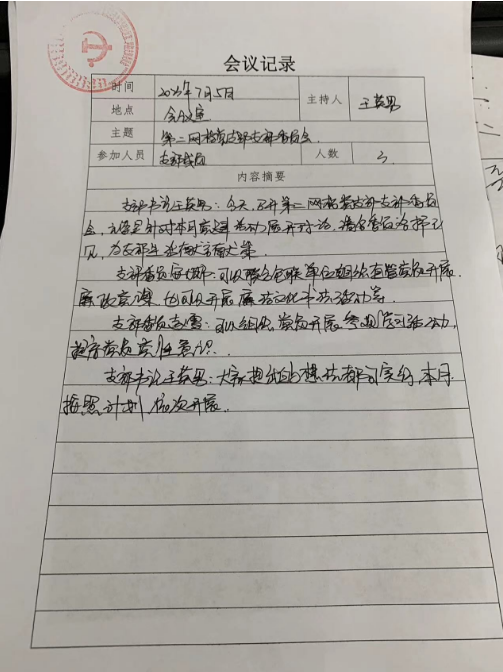 会议记录
时间 2023年7月5日 主持人 王英男
地点 会议室
主题 第二网格党支部支部委员会
参加人员 支部成员 人数 3
内容摘要
支部书记王英男：今天，召开第二网格党支部支部委员
会，主要是针对本月党建活动展开讨论，请各委员发挥意
见，为支部生活献言献策。
支部委员：可以联合包联单位组织直管党员开展
廉政党课，也可以开展廉洁文化书法活动等。
支部委员：可以组织党员开展参观活动，
提高党员党性意识。
支部书记王英男：大家提出的想法都可实行，本月
按照计划依次开展。